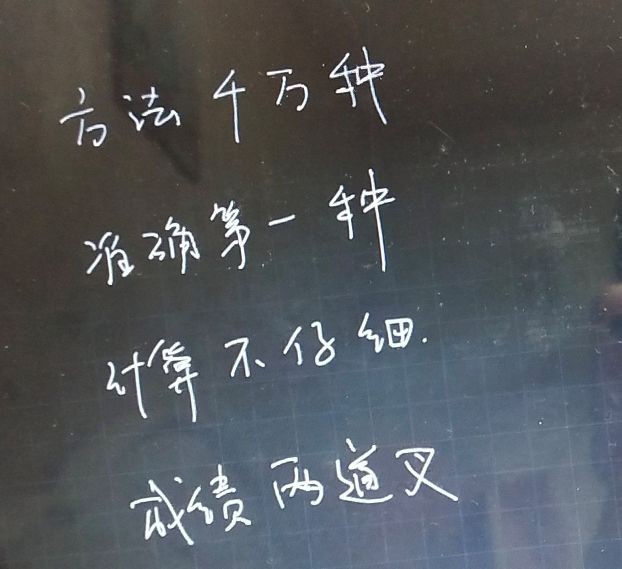 方法千万种
准确第一种
计算不仔细.
成绩两道叉